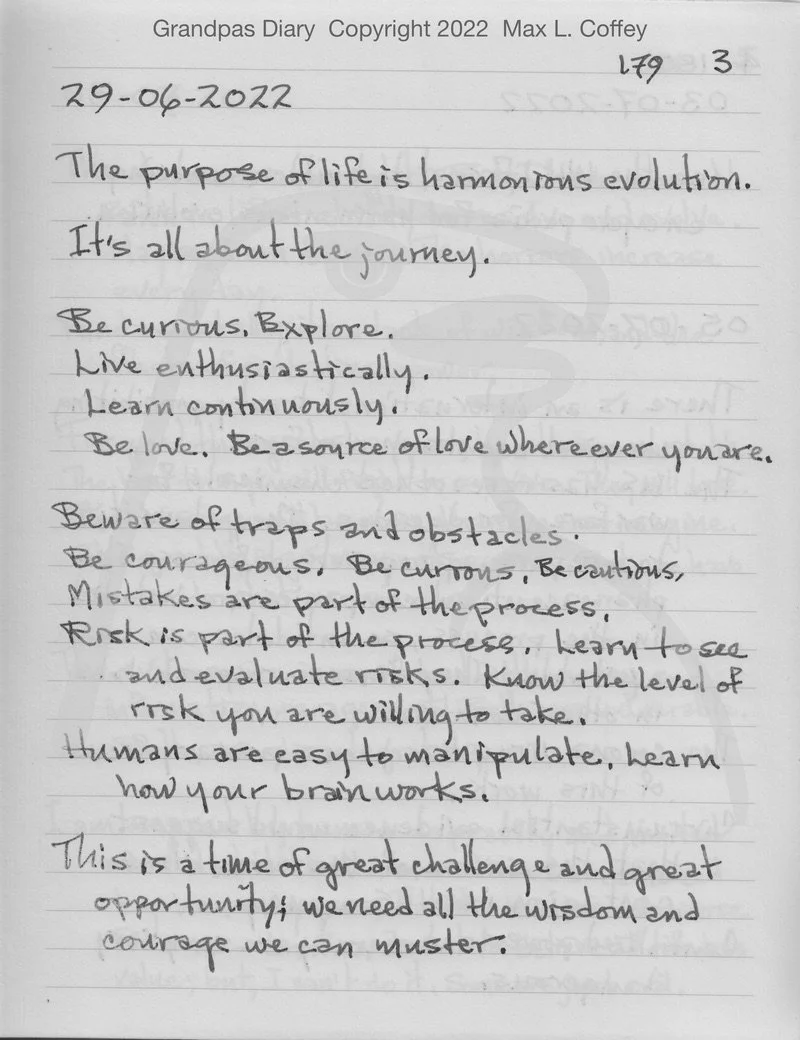 Grandpas Diary Copyright 2022 Max L. Coffey
179 3
29-06-2022
The purpose of life is harmonious evolution.
It's all about the journey.
Be curious. Explore.
Live enthusiastically.
Learn continuously.
Be love. Be a source of love where ever you are.
Beware of traps and obstacles.
Be courageous. Be curious, Be cautious,
Mistakes are part of the process.
Risk is part of the process. Learn to see
and evaluate risks. Know the level of
risk you are willing to take.
Humans are easy to manipulate. Learn
how your brain works.
This is a time of great challenge and great
opportunity; we need all the wisdom and
courage we can muster.